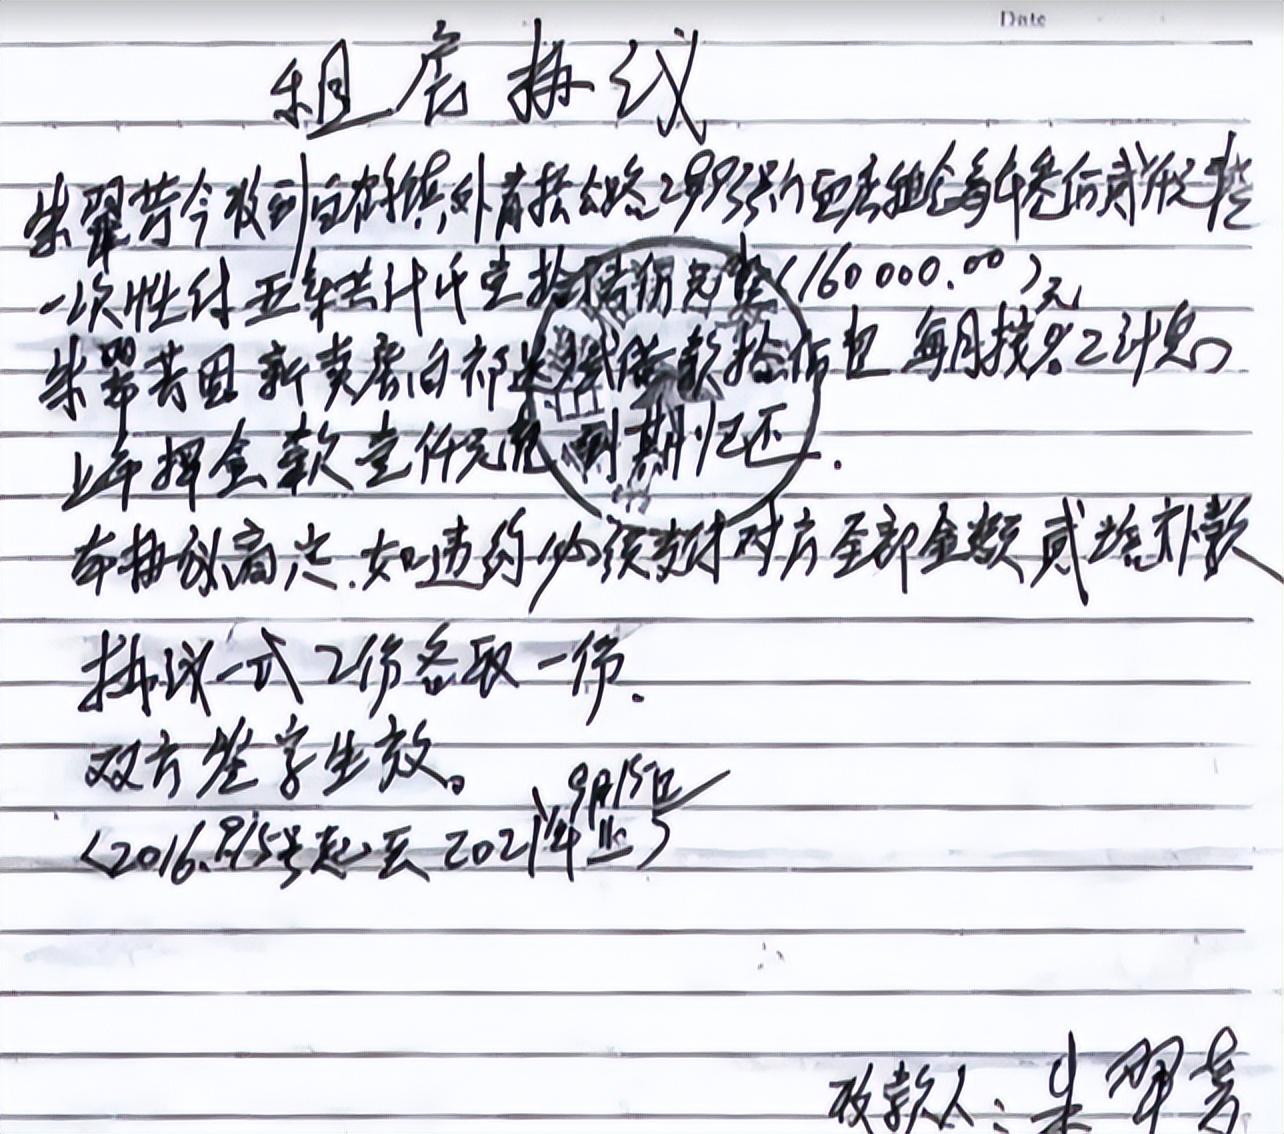 Date
租房协议
朱翠芳今收到白鹤镇外青松公路2993号门面房租金每年叁万贰仟元整
一次性付五年共计千壹拾陆万元整（160000.00）元
朱翠芳因新卖房向祁借款拾万也每月按%2计息
上年押金款壹仟元 到期归还.
本协议商定.如违约必须支付对方全部金额贰倍补款
协议一式2份各取一份.
双方签字生效。
（2016.9.15号起至2021年9月15日止）
收款人：朱翠芳